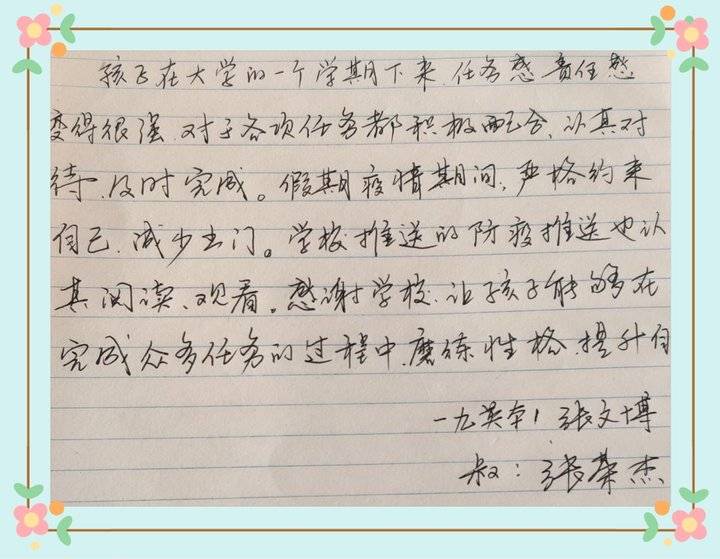 孩子在大学的一个学期下来,任务感、责任感
变得很强,对于各项任务都积极配合、认真对
待、及时完成。假期疫情期间,严格约束
自己,减少出门。学校推送的防疫推送也认
真阅读、观看。感谢学校,让孩子能够在
完成众多任务的过程中,磨练性格,提升自
一九英本1 张文博
叔:张荣杰